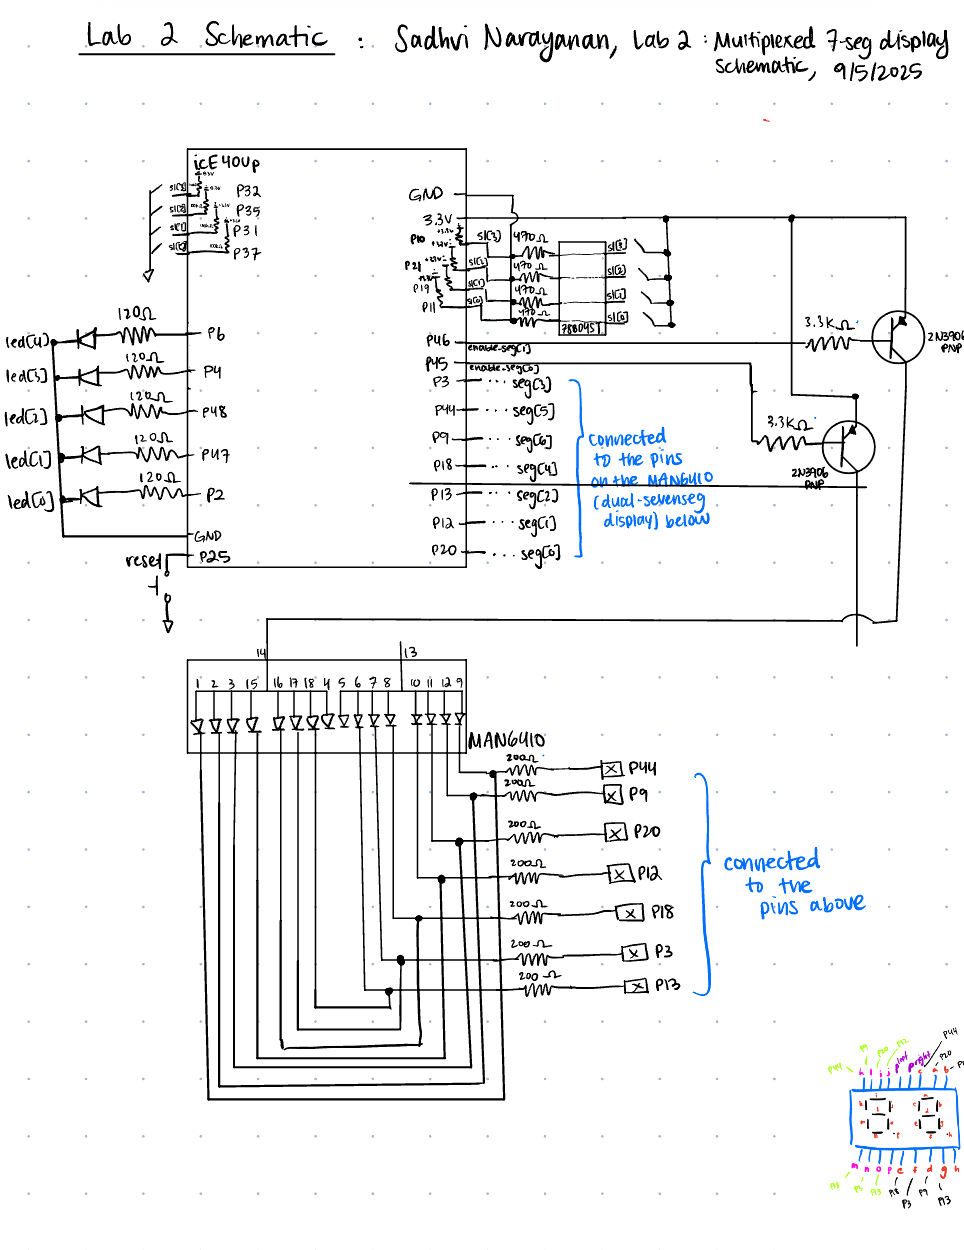 Lab 2 Schematic : Sadhvi Narayanan, Lab 2 : Multiplexed 7-seg display
Schematic, 9/5/2025
icE40Up
P32
P35
P31
P37
GND
3.3V
P10
P21
P19
P11
s1[3]
s1[2]
s1[1]
s1[0]
470Ω
470Ω
470Ω
470Ω
s1[3]
s1[2]
s1[1]
s1[0]
led[4] 120Ω P6
led[3] 120Ω P4
led[2] 120Ω P48
led[1] 120Ω P47
led[0] 120Ω P2
GND
reset P25
P46 enable_seg[1]
P45 enable_seg[0]
3.3KΩ
2N3906
PNP
3.3KΩ
2N3906
PNP
P3 ... seg[3]
P44 ... seg[5]
P9 ... seg[6]
P18 ... seg[4]
P13 ... seg[2]
P12 ... seg[1]
P20 ... seg[0]
connected
to the pins
on the MAN6410
(dual-sevenseg
display) below
14 13
1 2 3 15 16 17 18 4 5 6 7 8 10 11 12 9
MAN6410
200Ω P44
200Ω P9
200Ω P20
200Ω P12
200Ω P18
200Ω P3
200Ω P13
connected
to the
pins above
P44
P20
P18
P9
P13
P3